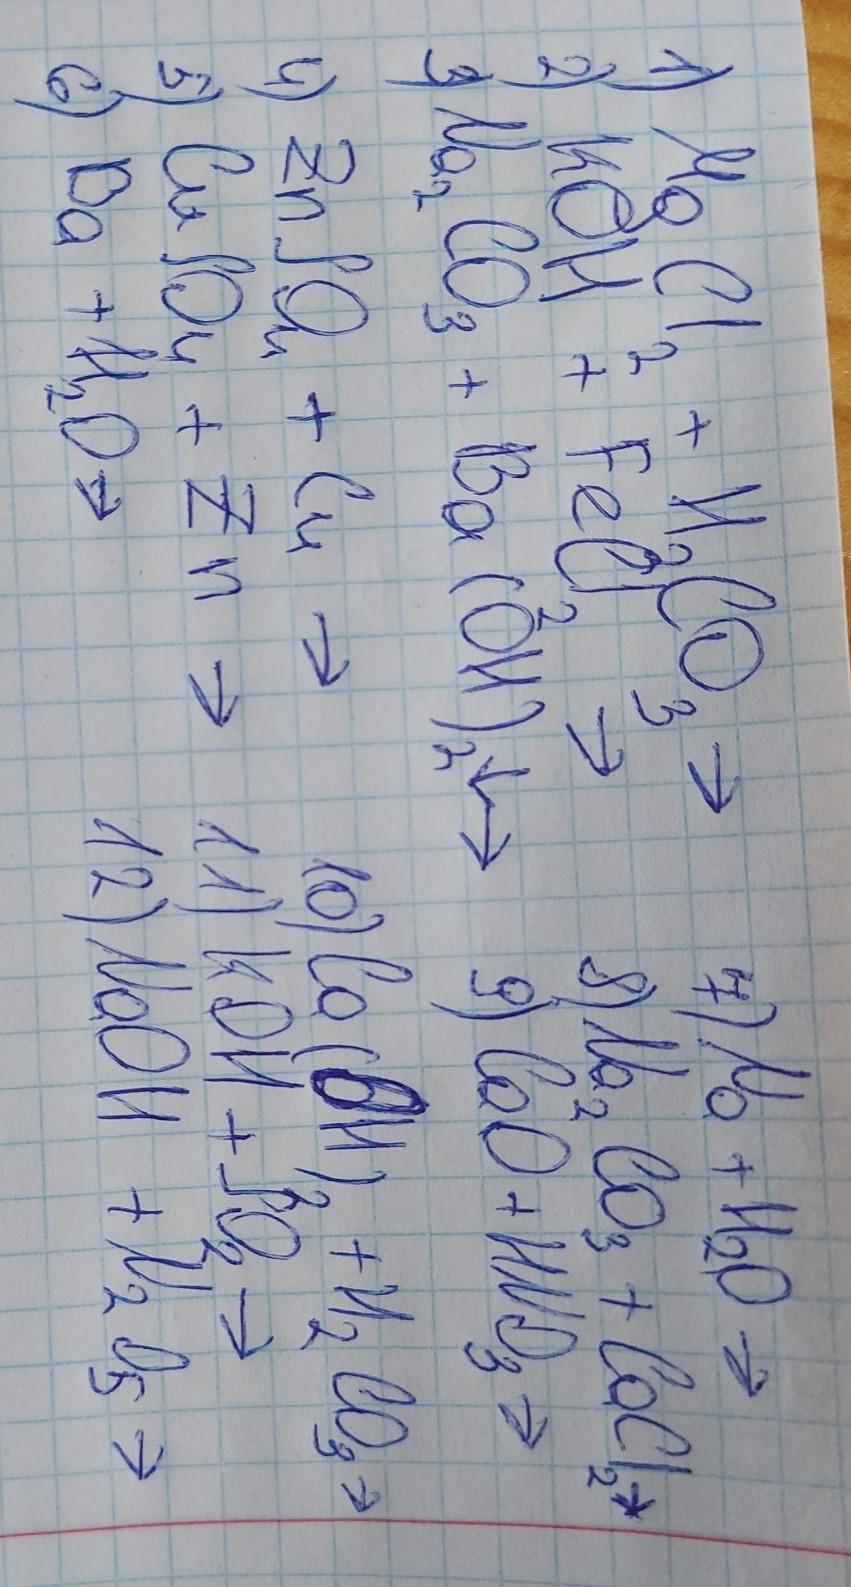 1) MgCl₂ + H₂CO₃ →
2) KOH + FeCl₂ →
3) Na₂CO₃ + Ba(OH)₂ →
4) ZnSO₄ + Cu →
5) CuSO₄ + Zn →
6) Ba + H₂O →
7) Na + H₂O →
8) Na₂CO₃ + CaCl₂ →
9) CaO + HNO₃ →
10) Ca(OH)₂ + H₂CO₃ →
11) KOH + SO₂ →
12) NaOH + N₂O₅ →